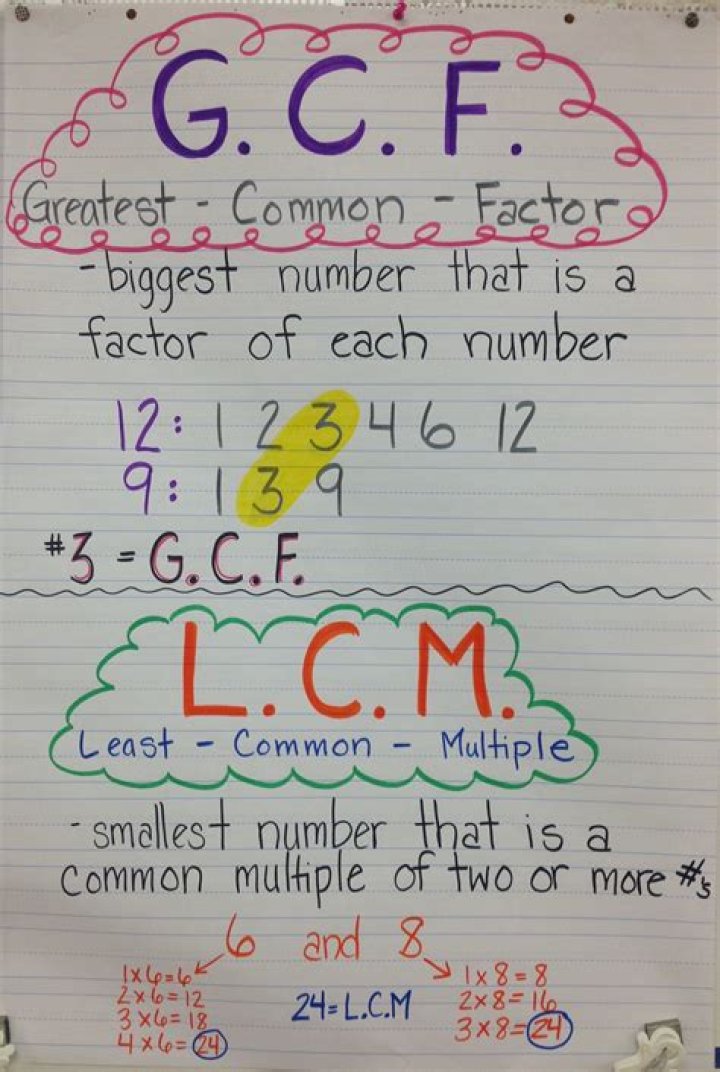 G. C. F.
Greatest - Common - Factor
-biggest number that is a
factor of each number
12: 1 2 3 4 6 12
9: 1 3 9
#3 = G.C.F.
L.C.M.
Least - Common - Multiple
-smallest number that is a
common multiple of two or more #s
6 and 8
1x6=6
2x6=12
3x6=18
4x6=24
24=L.C.M
1x8=8
2x8=16
3x8=24